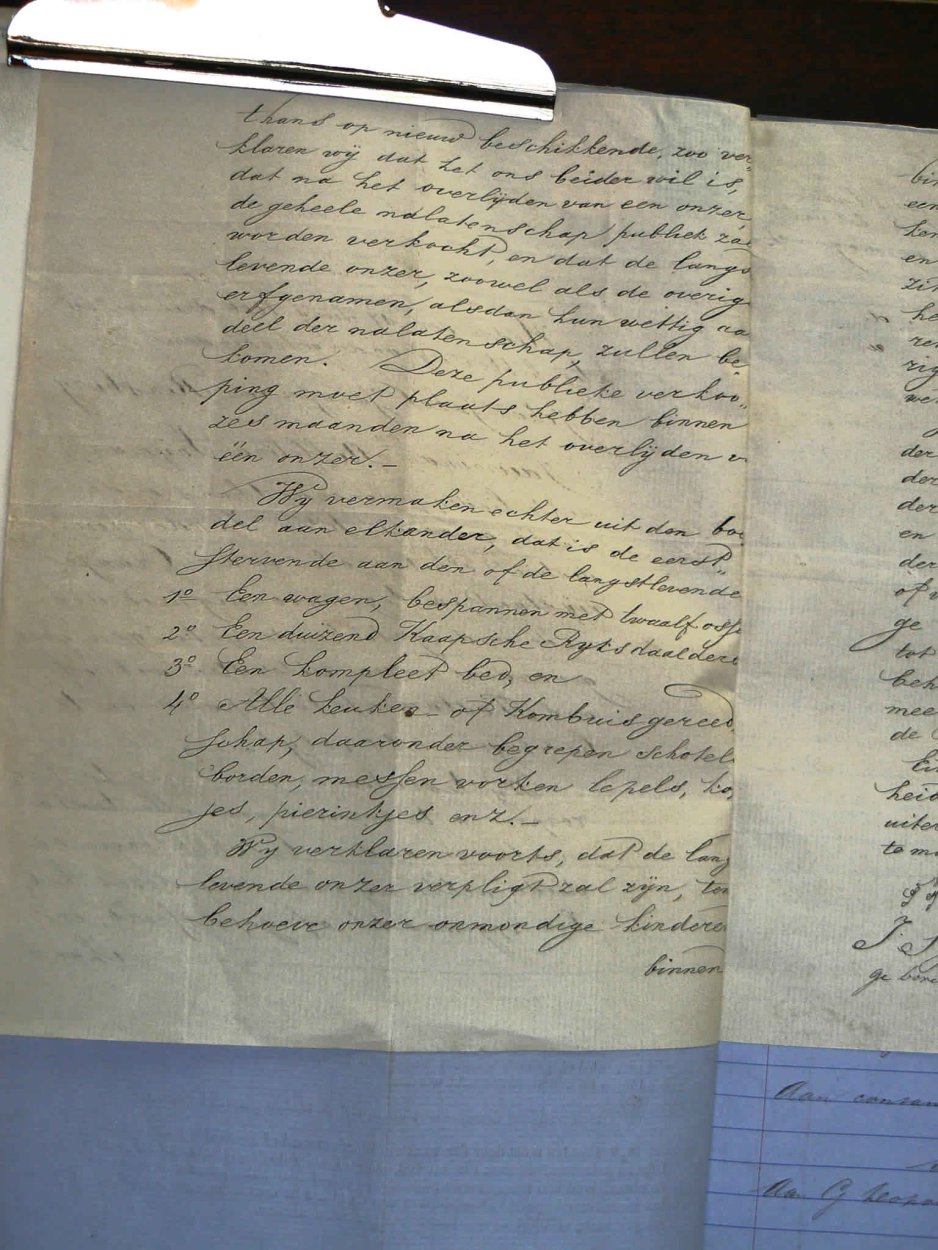 thans op nieuw beschikkende, zoo ver„
klaren wÿ dat het ons beider wil is,
dat na het overlÿden van een onzer,
de geheele nalatenschap publiek za
worden verkocht, en dat de langs
levende onzer, zoowel als de overig
erfgenamen, alsdan hun wettig aa
deel der nalatenschap, zullen be„
komen. Deze publieke verkoo„
ping moet plaats hebben binnen
zes maanden na het overlÿden v
één onzer.—
Wÿ vermaken echter uit den bo
del aan elkander, dat is de eerst„
stervende aan den of de langstlevende
1o Een wagen, bespannen met twaalf osse
2o Een duizend Kaapsche Ryksdaalders
3o Een kompleet bed, en
4o Alle keuken- of Kombuisgereed
schap, daaronder begrepen schotel
borden, messen vorken lepels, ko
jes, pierintjes enz.—
Wÿ verklaren voorts, dat de lang
levende onzer verpligt zal zÿn, ten
behoeve onzer onmondige kindere
binnen
bin
een
ken
en
zin
he
ren
rig
we
der
der
der
en
der
of v
ge
tot
beh
mee
de
heid
uiter
te m
ge bore
Aan
Aan G